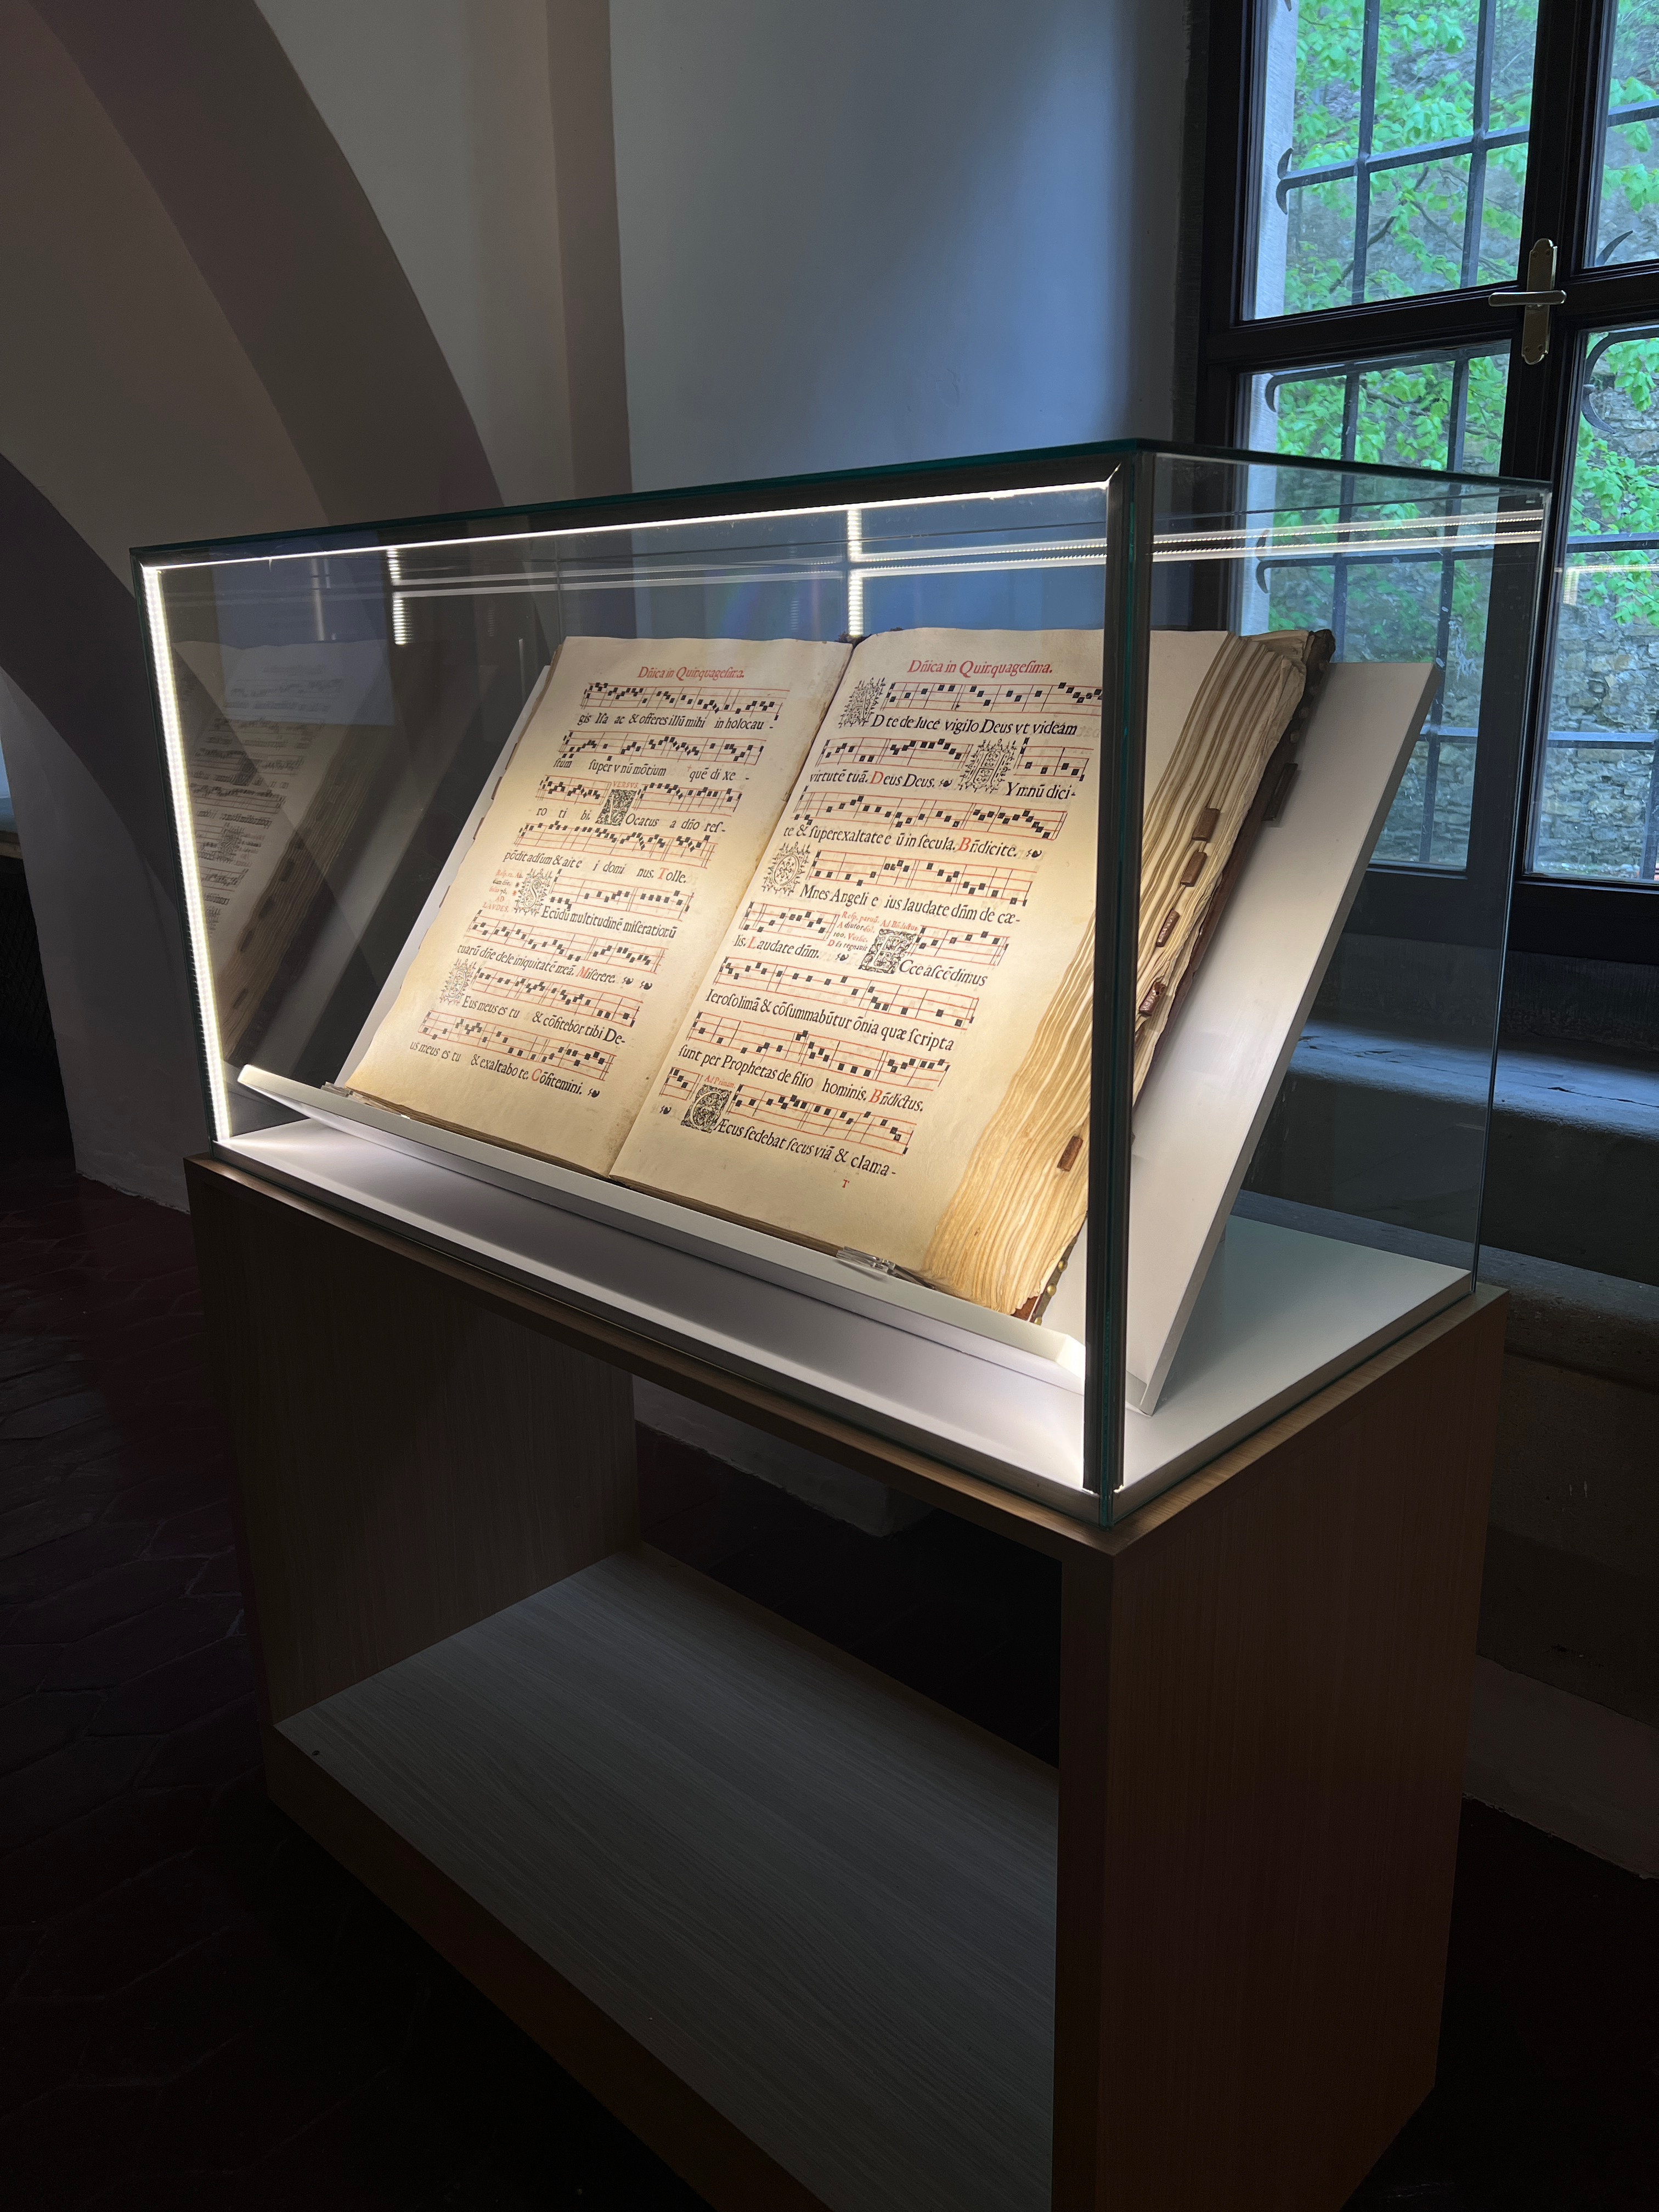 Dñica in Quinquagesima.
gis Isa ac & offeres illũ mihi in holocau -
stum super v nũ mõtium quẽ di xe -
VERSVS.
ro ti bi. VOcatus a dño res-
põdit adsum & ait e i domi nus. Tolle.
AD LAVDES.
SEcũdũ multitudinẽ miserationũ
tuarũ dñe dele iniquitatẽ meã. Miserere.
DEus meus es tu & cõfitebor tibi De-
us meus es tu & exaltabo te. Cõfitemini.
Dñica in Quinquagesima.
AD te de luce vigilo Deus vt videam
virtutẽ tuã. Deus Deus. HYmnũ dici-
te & superexaltate e ũ in secula. Bñdicite.
OMnes Angeli e ius laudate dñm de cæ-
Resp. parvũ. Ad Bñdictus
lis. Laudate dñm. ECce ascẽdimus
Ierosolimã & cõsummabũtur õnia quæ scripta
sunt per Prophetas de filio hominis. Bñdictus.
Ad Primam
CÆcus sedebat secus viã & clama -
T